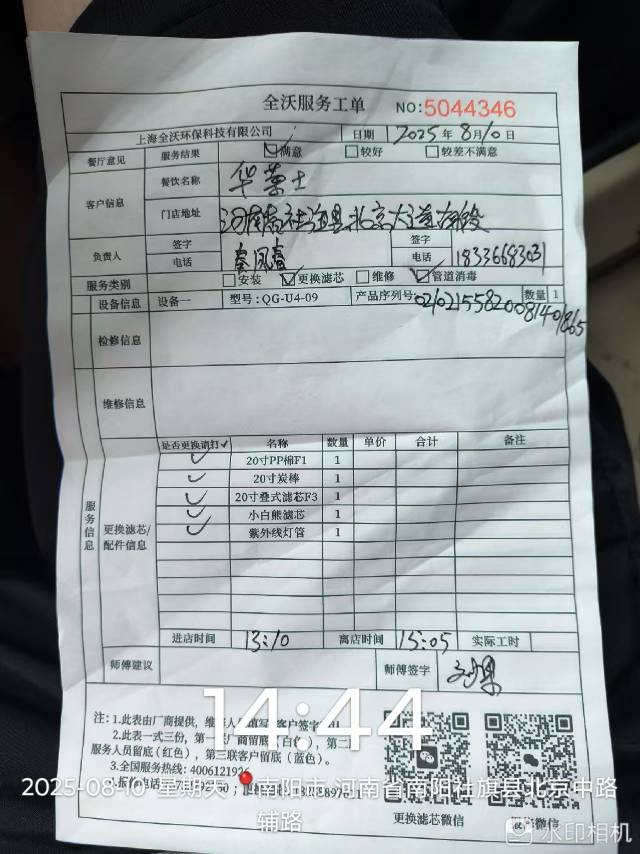 全沃服务工单 NO:5044346
上海全沃环保科技有限公司 日期 2025年8月10日
餐厅意见 服务结果 满意 较好 较差不满意
客户信息 餐饮名称 华莱士
门店地址 河南省社旗县北京大道
负责人 签字 秦凤春 签字
电话 电话 18336683031
服务类别 安装 更换滤芯 维修 管道消毒
设备信息 设备一 型号:QG-U4-09 产品序列号: 数量 1
检修信息
维修信息
服务信息
更换滤芯/配件信息
是否更换请打✓ 名称 数量 单价 合计 备注
✓ 20寸PP棉F1 1
✓ 20寸炭棒 1
✓ 20寸叠式滤芯F3 1
✓ 小白熊滤芯 1
✓ 紫外线灯管 1
进店时间 13:10 离店时间 15:05 实际工时
师傅建议 师傅签字
注：1.此表由厂商提供,
2.此表一式三份,
服务人员留底(红色), 第三联客户留底(蓝色)。
3.全国服务热线:
更换滤芯微信
14:44
2025-08-10 星期天 南阳市·河南省南阳社旗县北京中路
辅路
水印相机